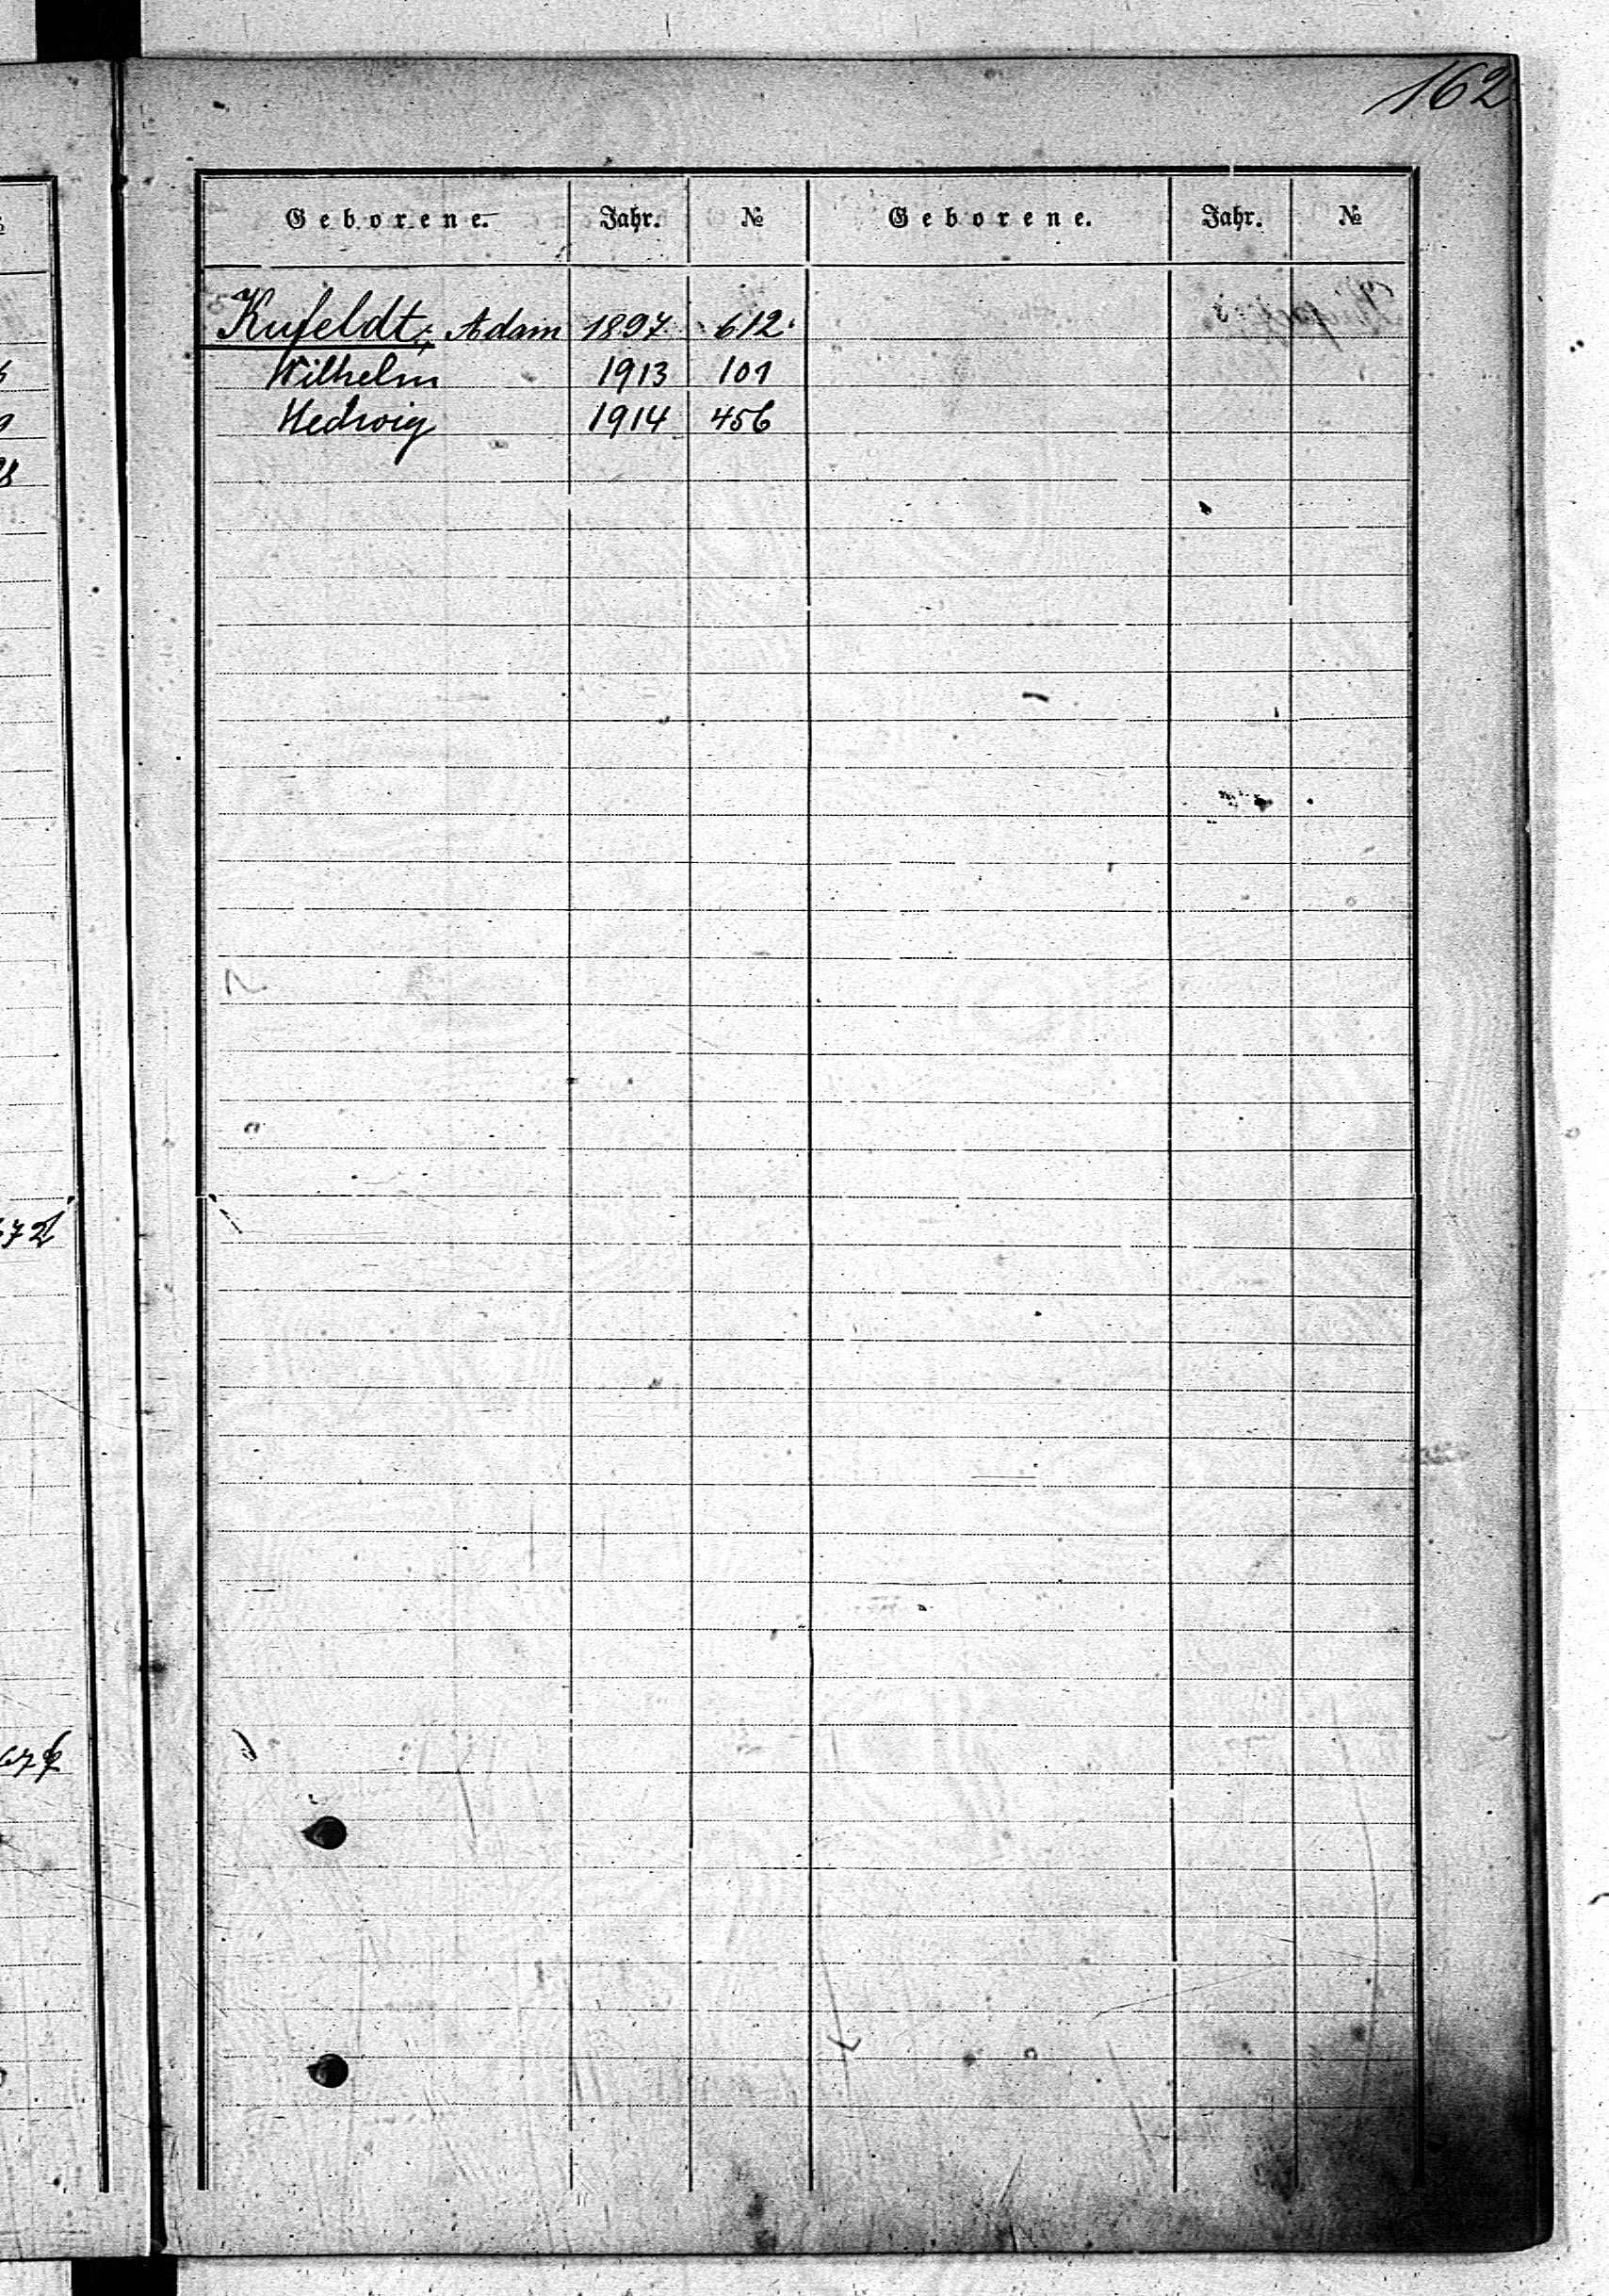 162
Geborene. Jahr. № Geborene. Jahr. №
Kufeldt, Adam 1897 612.
Wilhelm 1913 101
Hedwig 1914 456